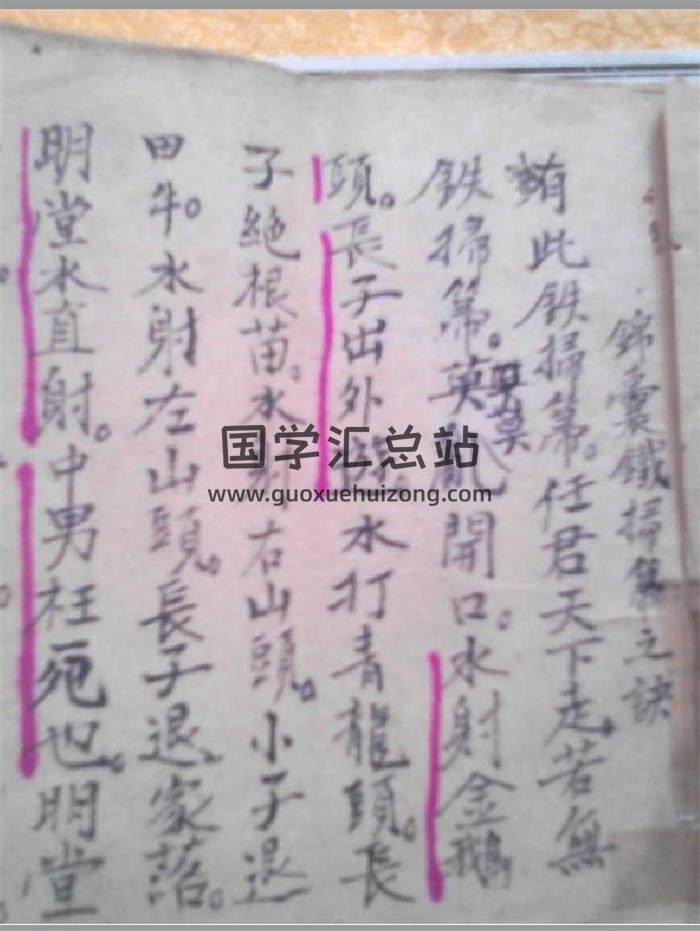 錦囊鐵掃箒之訣
有此鉄掃箒。任君天下走。若無
鉄掃箒。英乱開口。水射金鵝
早莫
頭。長子出外。水打青龍頭。長
子絶根苗。水射右山頭。小子退
田牛。水射左山頭。長子退家落。
明堂水直射。中男枉死也。明堂
国学汇总站
www.guoxuehuizong.com